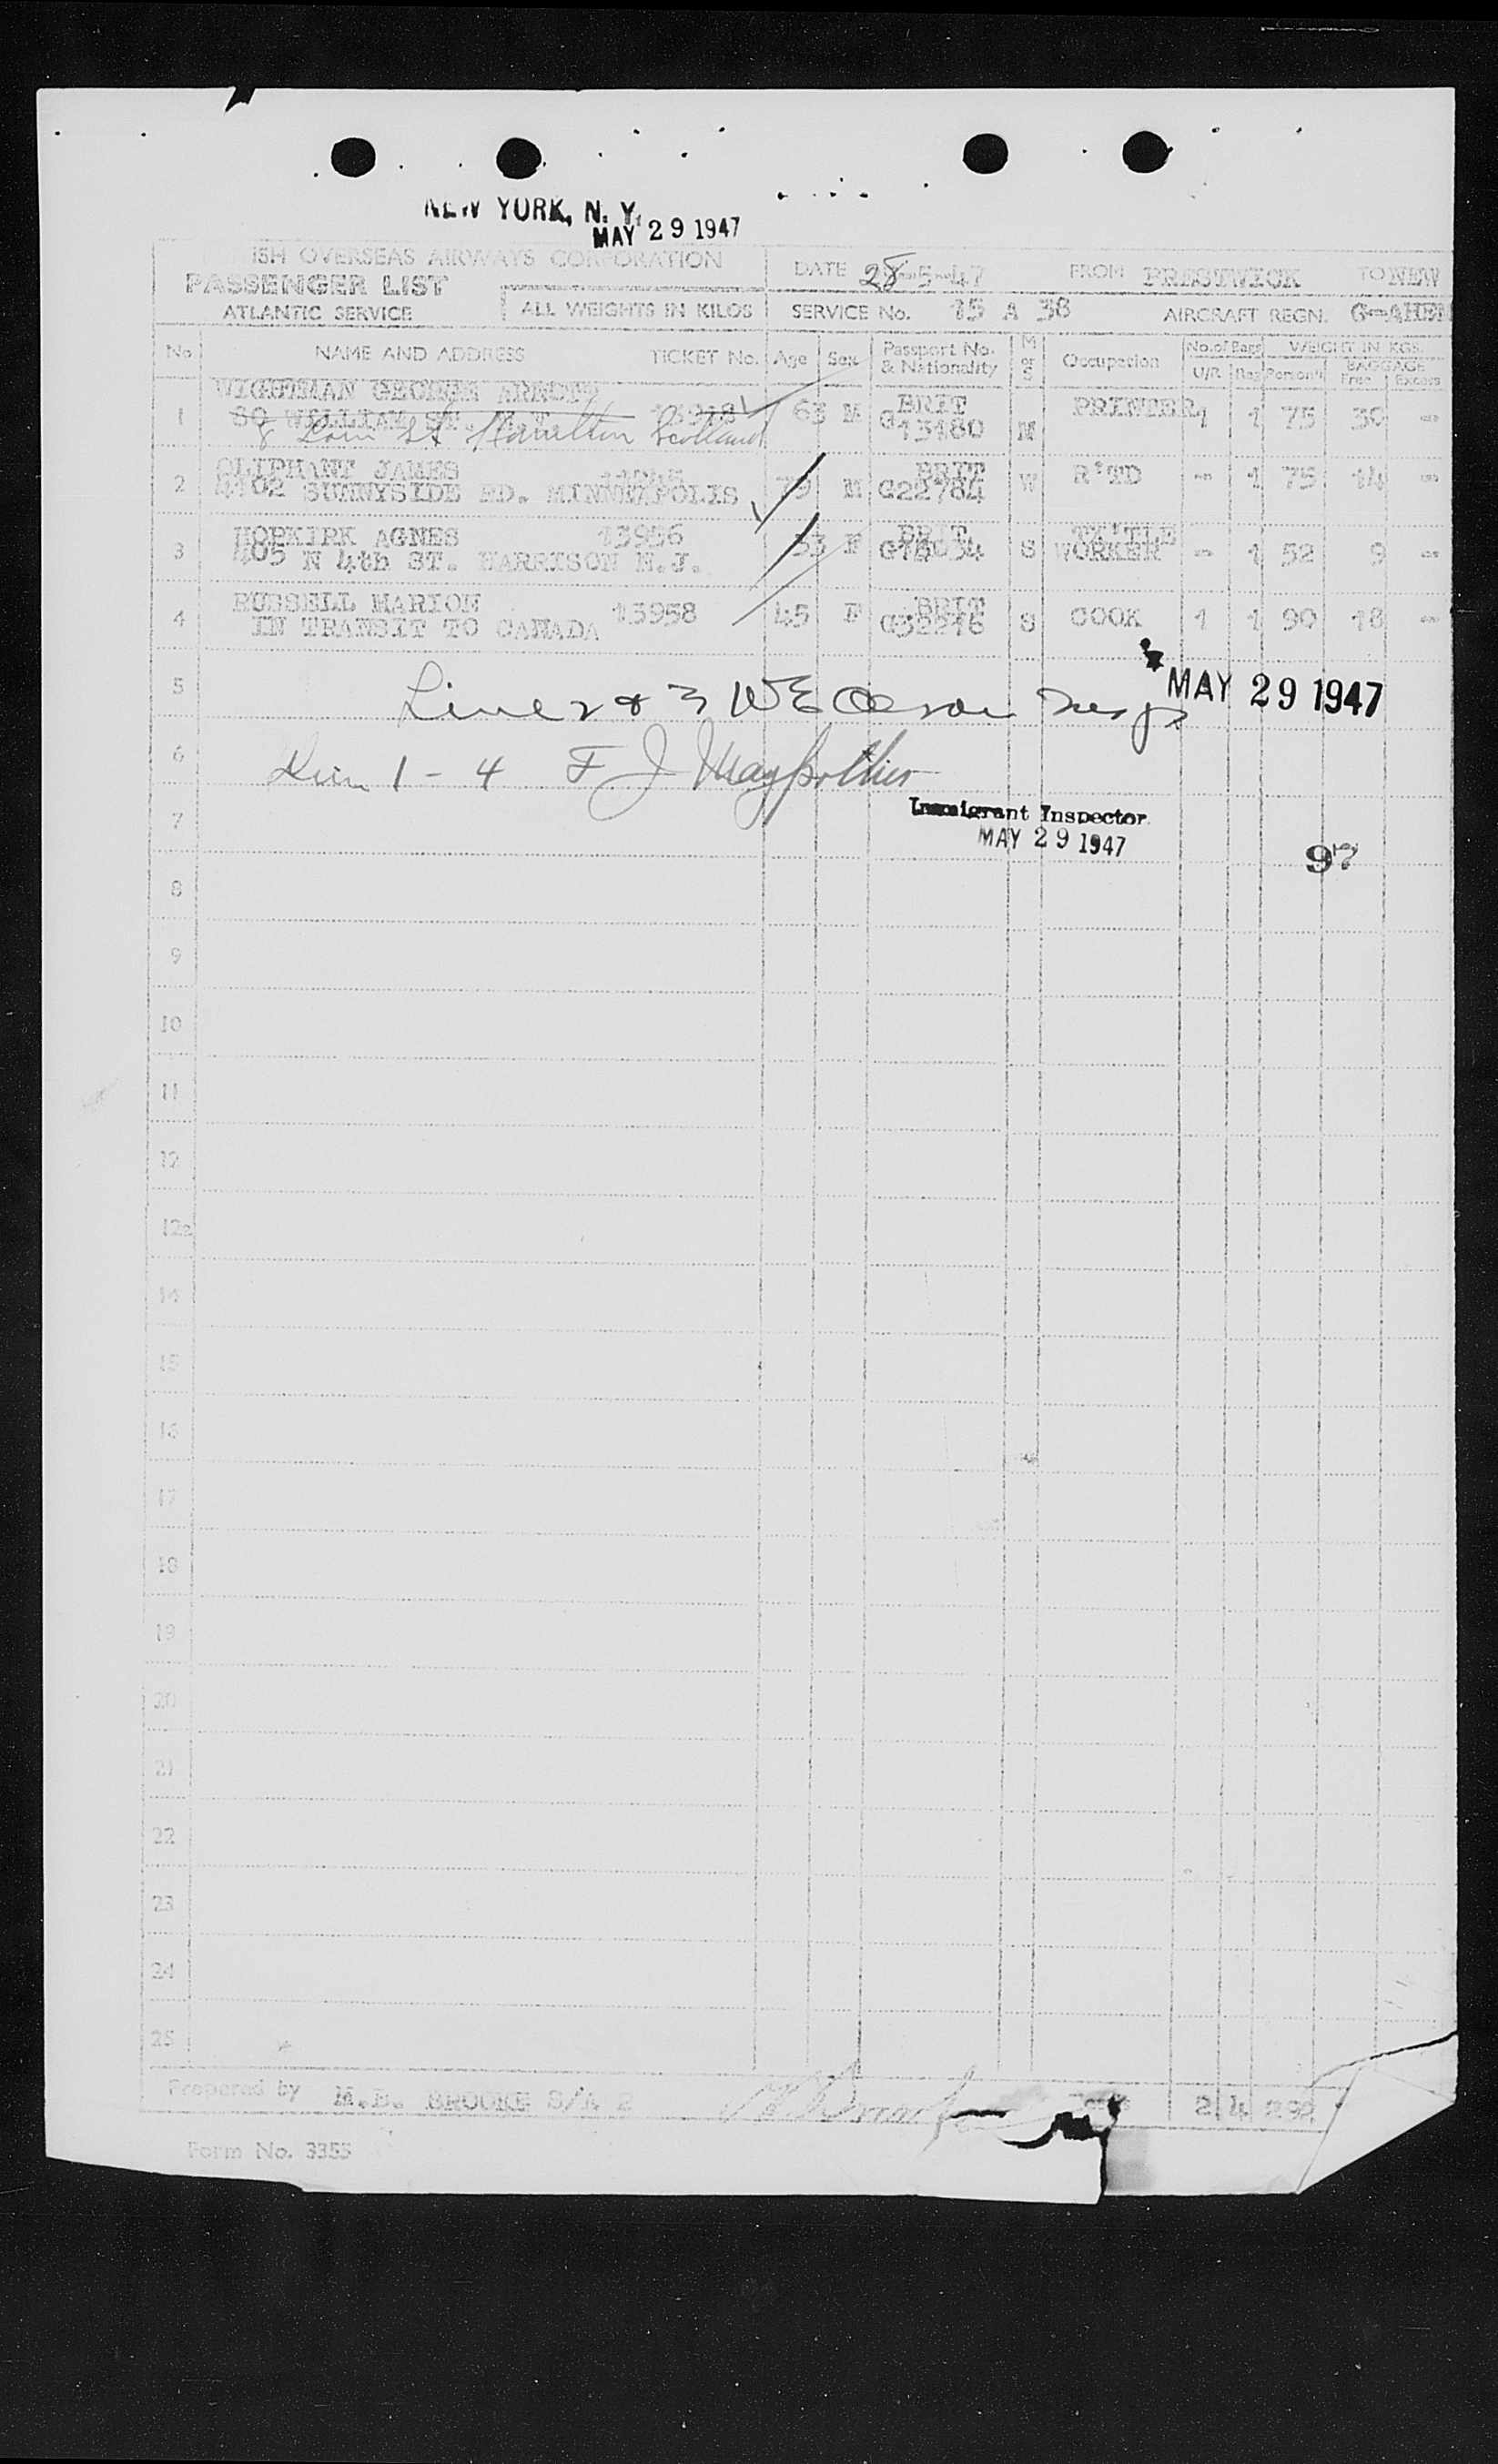 NEW YORK, N. Y.
MAY 29 1947
ISH OVERSEAS AIRWAYS CORPORATION
PASSENGER LIST
ATLANTIC SERVICE
ALL WEIGHTS IN KILOS
DATE 28-5-47
FROM PRESTWICK
TO NEW
SERVICE No. 15 A 38
AIRCRAFT REGN. G-AHEN
No NAME AND ADDRESS TICKET No. Age Sex Passport No. & Nationality M or S Occupation No. of Bags U/R Reg WEIGHT IN KGS. Person'l BAGGAGE Free Excess
WIGHTMAN GEORGE ARNOTT BRIT
1 80 WILLIAM ST. N.Y. 63 M G13180 M PRINTER 1 1 75 30 -
8 St Hamilton Scotland
OLIPHANT JAMES BRIT
2 4102 SUNNYSIDE RD. MINNEAPOLIS 79 M G22784 W R'TD - 1 75 14 -
HOPKIRK AGNES 13956 BRIT TX'TLE
3 405 N 4th ST. HARRISON N.J. 53 F S WORKER - 1 52 9 -
RUSSELL MARION 13958 BRIT
4 IN TRANSIT TO CANADA 45 F G32216 S COOK 1 1 90 18 -
5 Line 2 & 3 WE Oleson Insp MAY 29 1947
6 1 - 4 F J
Immigrant Inspector
7 MAY 29 1947
97
8
9
10
11
12
12a
14
15
16
17
18
19
20
21
22
23
24
25
Prepared by M.B. BROOKE S/A 2 2 4 292
Form No. 3355